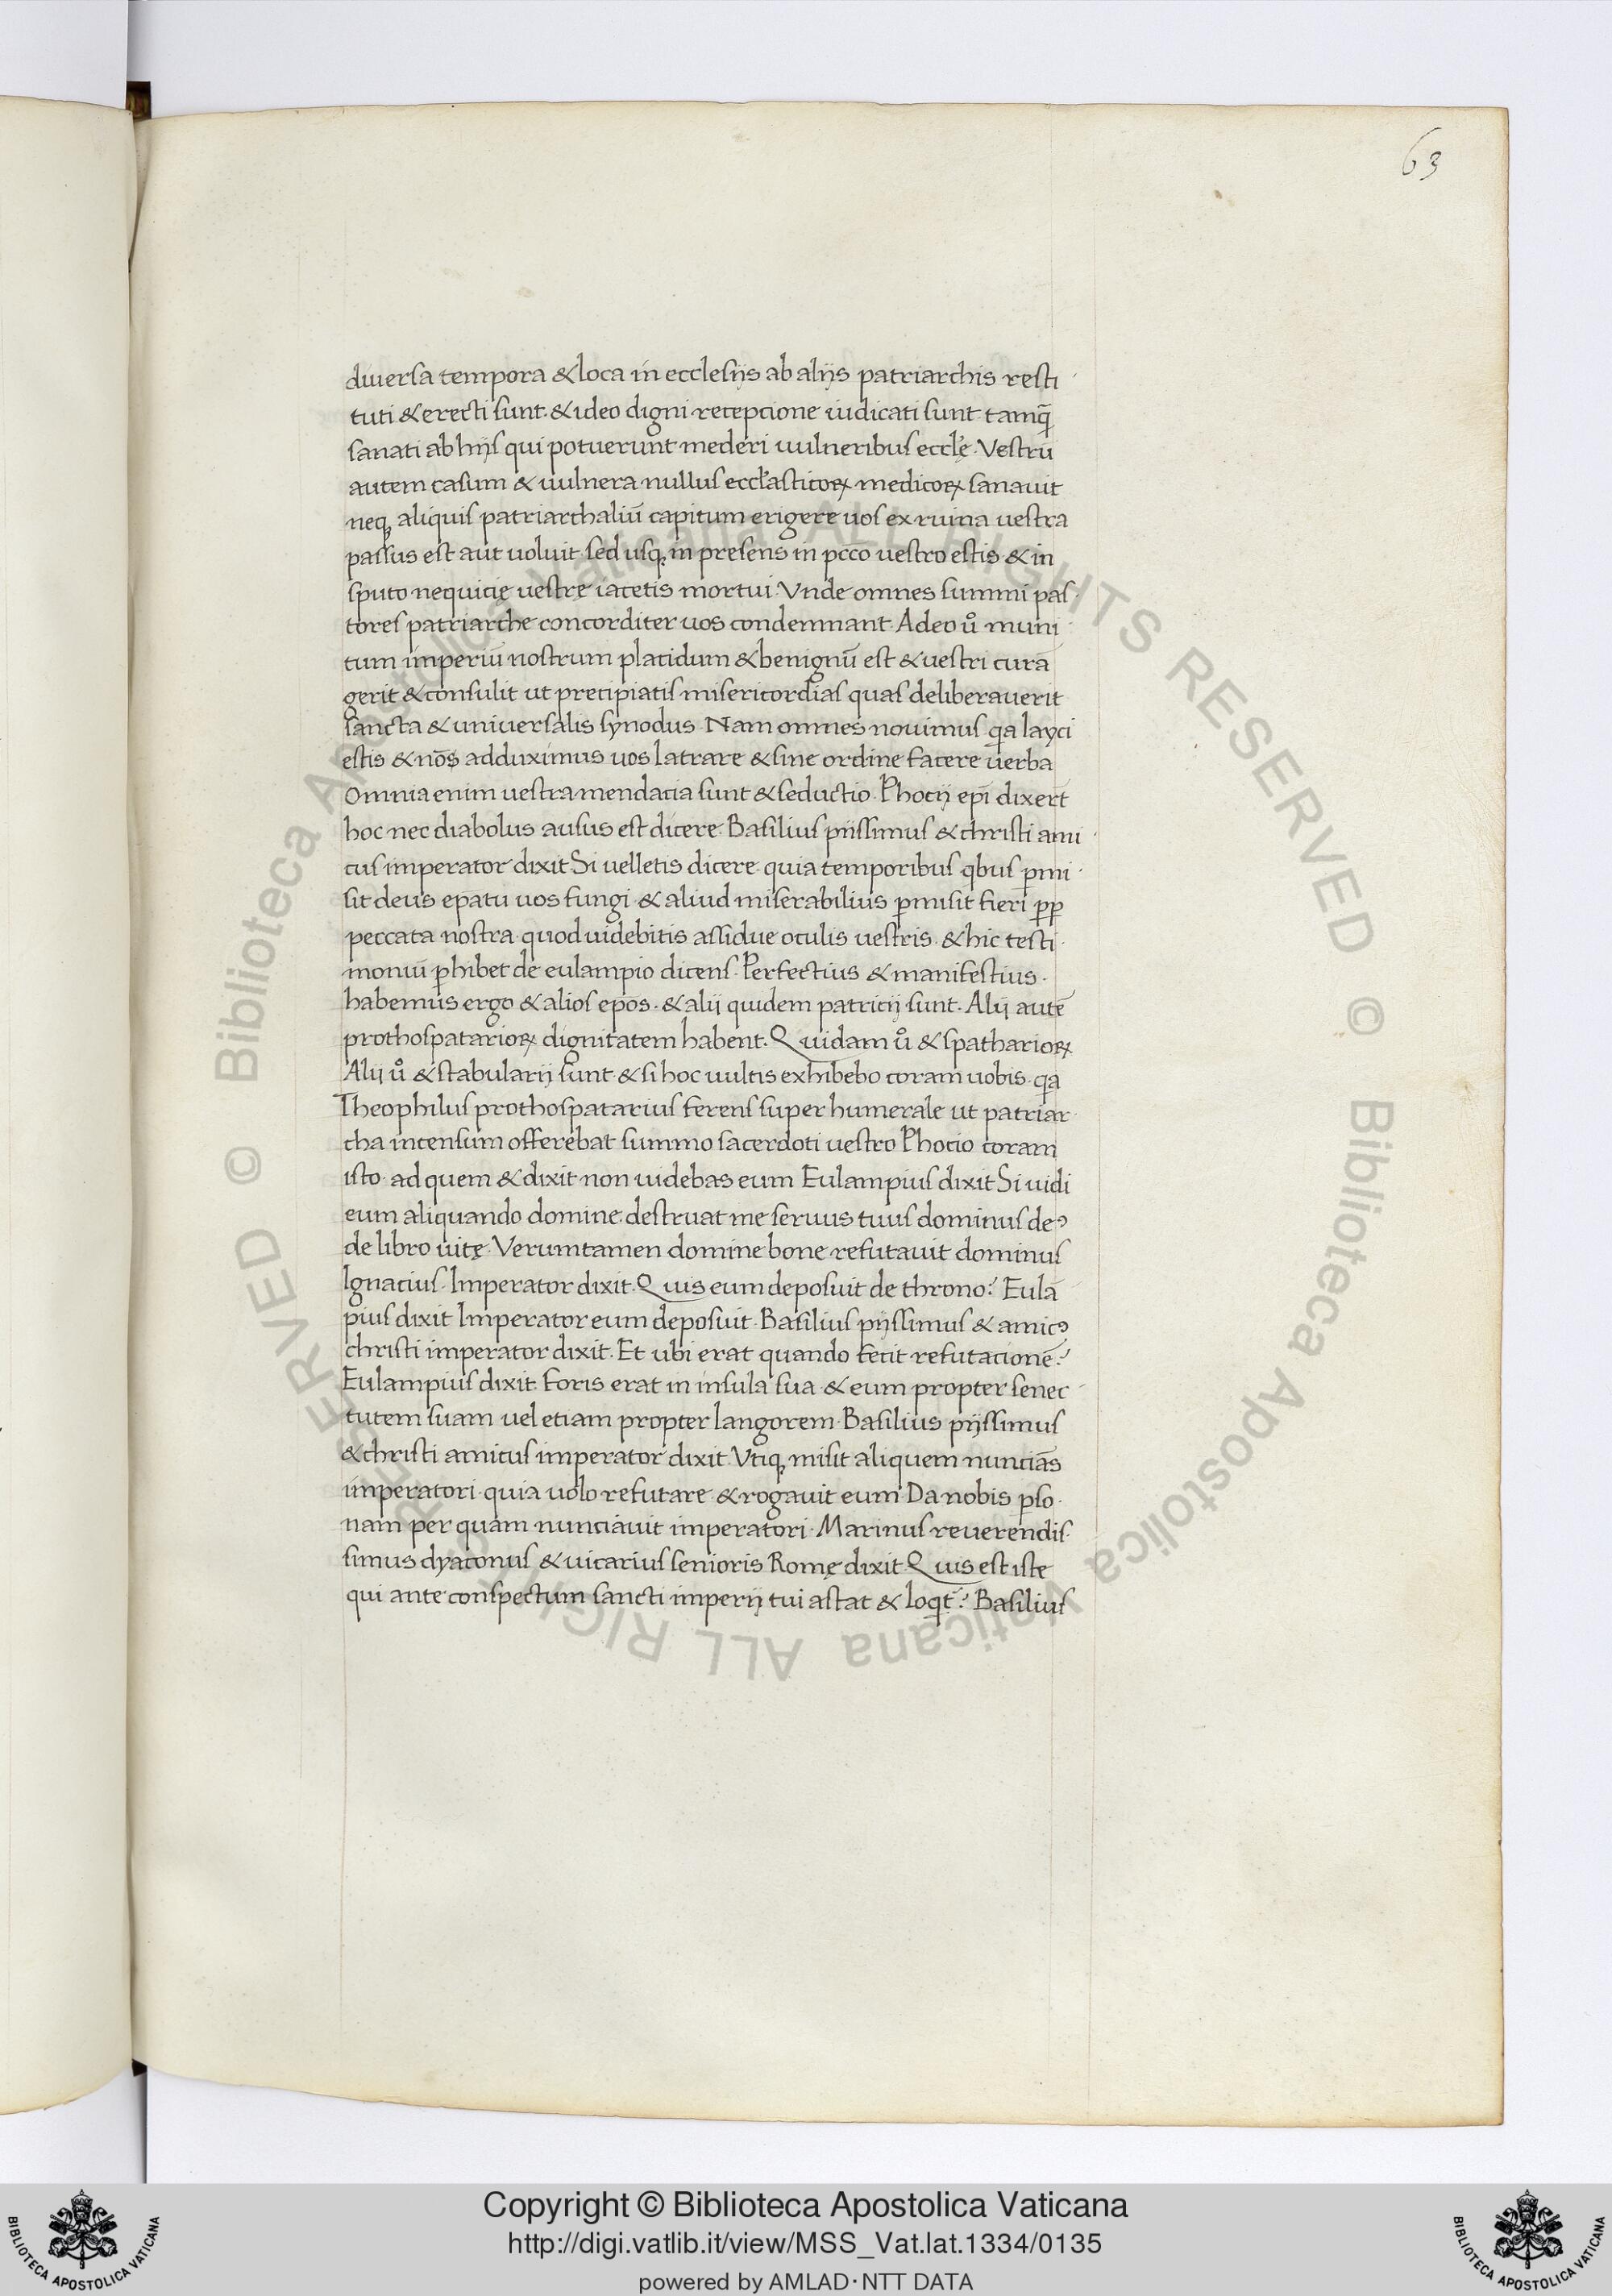 63
diuersa tempora & loca in ecclesijs ab alijs patriarchis resti
tuti & erecti sunt & ideo digni recepcione iudicati sunt tamq̄
sanati ab hijs qui potuerunt mederi uulneribus eccłę. Vestrū
autem casum & uulnera nullus eccłasticoꝝ medicoꝝ sanauit
neqꝫ aliquis patriarchaliū capitum erigere uos ex ruina uestra
passus est aut uoluit sed usqꝫ in presens in pcc̄o uestro estis & in
sputo nequicię uestrę iacetis mortui. Vnde omnes summi pas
tores patriarche concorditer uos condemnant. Adeo uͦ muni
tum imperiū nostrum placidum & benignū est & uestri curā
gerit & consulit ut precipiatis misericordias quas deliberauerit
sancta & uniuersalis synodus. Nam omnes nouimus qa layci
estis & nōs adduximus uos latrare & sine ordine facere uerba
Omnia enim uestra mendacia sunt & seductio. Phocij epī dixert̄
hoc nec diabolus ausus est dicere. Basilius piissimus & christi ami
cus imperator dixit. Si uelletis dicere quia temporibus qbus ꝑmi
sit deus ep̄atu uos fungi & aliud miserabilius ꝑmisit fieri ꝓp
peccata nostra quod uidebitis assidue oculis uestris & hic testi
moniū ꝑhibet de eulampio dicens. Perfectius & manifestius.
habemus ergo & alios ep̄os. & alii quidem patricij sunt. Alij autē
prothospatarioꝝ dignitatem habent. Quidam uͦ & spatharioꝝ
Alij uͦ & stabularij sunt & si hoc uultis exhibebo coram uobis qa
Theophilus prothospatarius ferens super humerale ut patriar
cha incensum offerebat summo sacerdoti uestro Phocio coram
isto ad quem & dixit non uidebas eum Eulampius dixit Si uidi
eum aliquando domine destruat me seruus tuus dominus deꝰ
de libro uitę. Verumtamen domine bone refutauit dominus
Ignacius. Imperator dixit. Quis eum deposuit de throno? Eulā
pius dixit Imperator eum deposuit. Basilius pijssimus & amicꝰ
christi imperator dixit. Et ubi erat quando fecit refutacionē?
Eulampius dixit. foris erat in insula sua & eum propter senec
tutem suam uel etiam propter langorem. Basilius pijssimus
& christi amicus imperator dixit. Vtiqꝫ misit aliquem nunciās
imperatori quia uolo refutare & rogauit eum. Da nobis ꝑso
nam per quam nunciauit imperatori. Marinus reuerendis
simus dyaconus & uicarius senioris Romę dixit. Quis est iste
qui ante conspectum sancti imperij tui astat & loqt̄? Basilius
© Biblioteca Apostolica Vaticana ALL RIGHTS RESERVED
© Biblioteca Apostolica Vaticana ALL RIGHTS RESERVED
Copyright © Biblioteca Apostolica Vaticana
http://digi.vatlib.it/view/MSS_Vat.lat.1334/0135
powered by AMLAD·NTT DATA
BIBLIOTECA APOSTOLICA VATICANA
BIBLIOTECA APOSTOLICA VATICANA